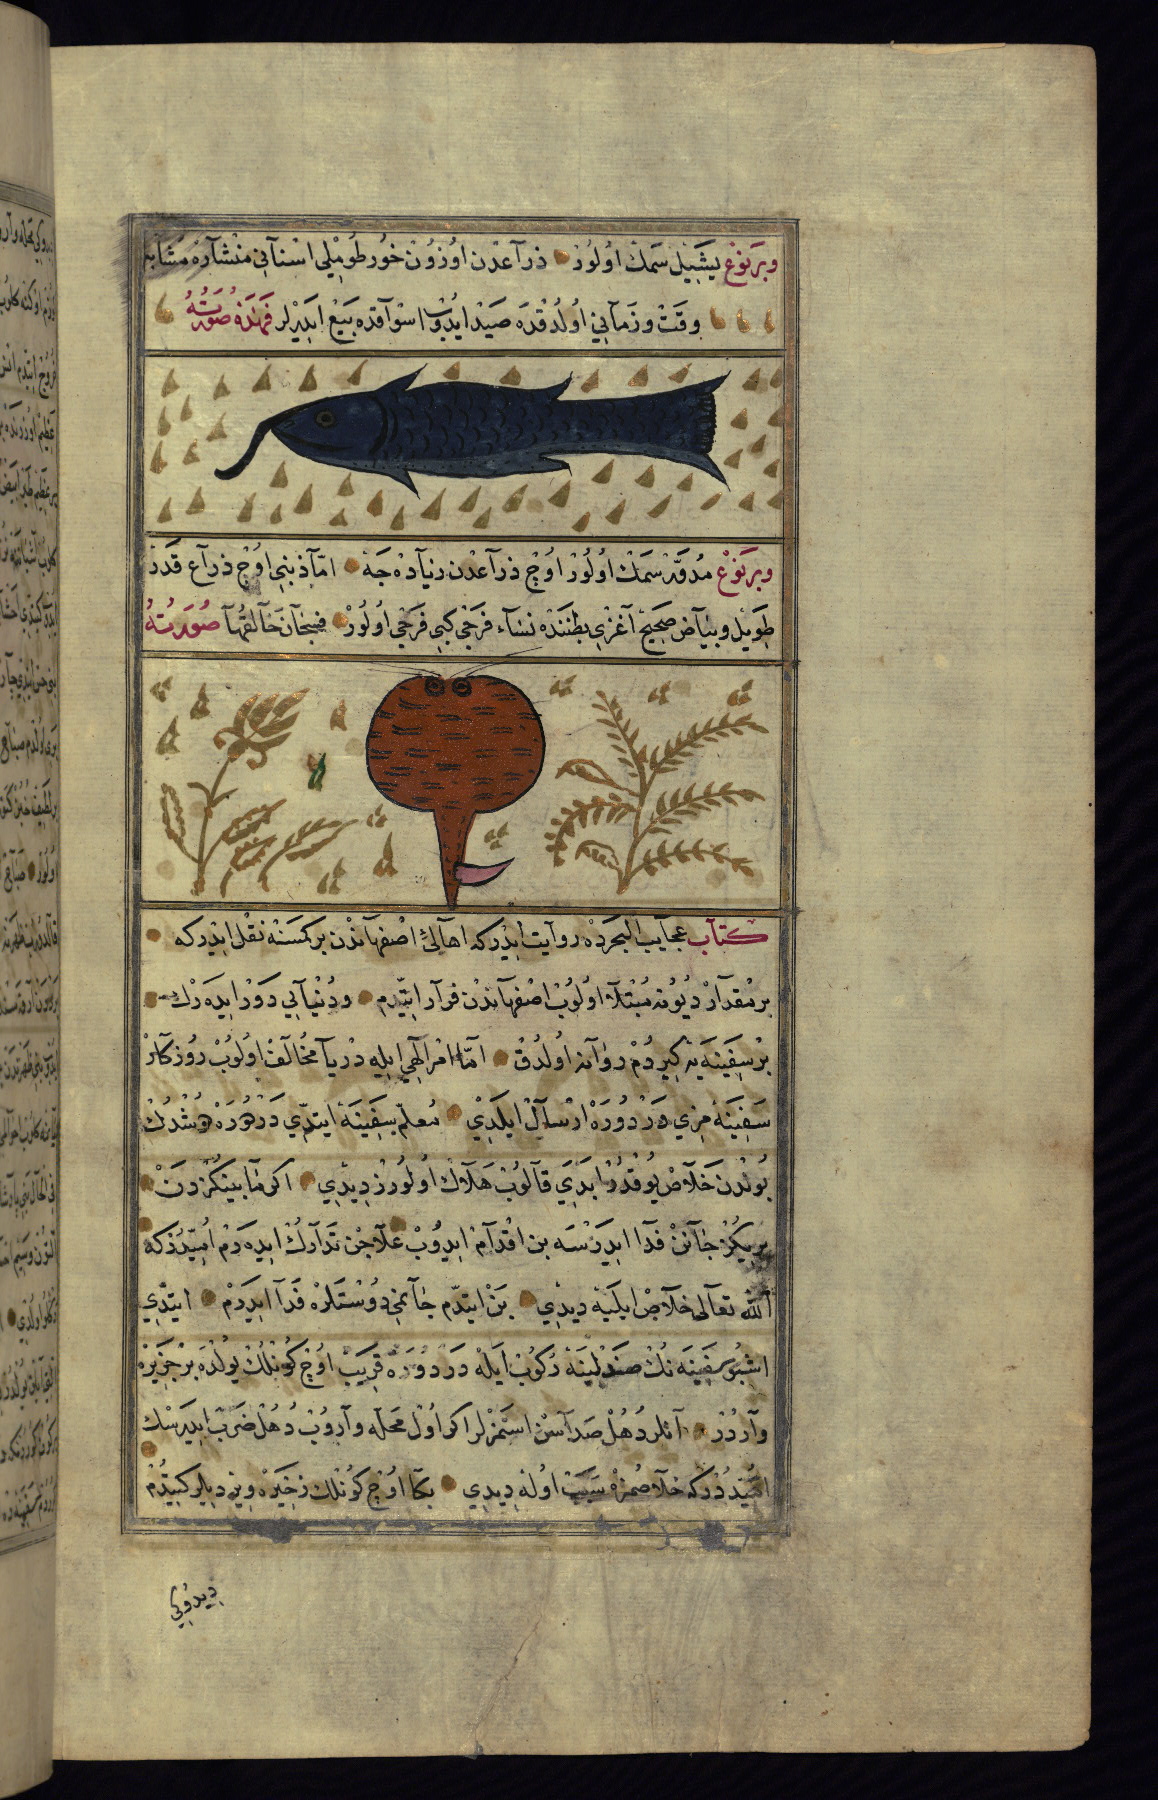 وبر نوع يشيل سمك اولور ذراعدن اوزون خورطوملي اسناني منشاره مشابه
وقت و زماني اولدقده صيد ايدوب اسواقده بيع ايديرلر فهذه صورته
وبر نوع مدور سمك اولور اوچ ذراعدن زياده جه امّا ذنبي اوچ ذراع قدر
طويل وبياض صحيح آغزي بطننده نساء فرجي كبي فرجي اولور فسبحان خالقها صورته
كتاب عجايب البحرده روايت ايدركه اهاليء اصفهاندن بر كمسنه نقل ايدركه
بر مقدار ديونه مبتلا اولوب اصفهاندن فرار ايتدم ودنيايي دور ايده رك
بر سفينه يه كيردم روانه اولدق امّا امر الهي ايله دريا مخالف اولوب روزكار
سفينه مزي دردوره ارسال ايلدي معلّم سفينه ايتدي دردوره دوشدك
بوندن خلاص يوقدر ابدي قالوب هلاك اولورز ديدي اكر مابينكزدن
بريكز جانن فدا ايدرسه بن اقدام ايدوب علاجن تدارك ايده رم اميددركه
الله تعالى خلاص ايليه ديدي بن ايتدم جانمي دوستلره فدا ايدرم ايتدي
اشبو سفينه نك صندلينه ركوب ايله دردوره قريب اوچ كونلك يولده بر جزيره
واردر آنلر دهل صداسن استمزلر اكر اول محله واروب دهل ضرب ايدرسك
اميددركه خلاصمزه سبب اوله ديدي بكا اوچ كونلك ذخيره ويرديلر كيتدم
ديدوكي